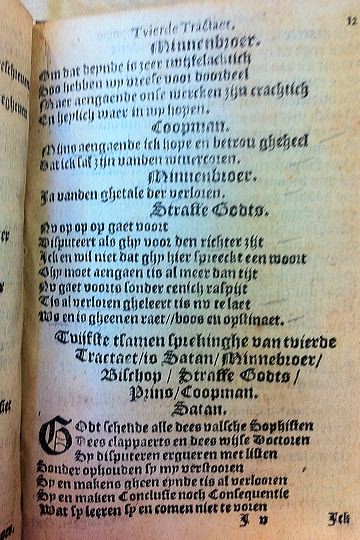 12
Tvierde Tractaet.
Minnenbroer.
Om dat deynde is zeer twijfelachtich
Soo hebben wy vreese voor voordeel
Maer aengaende onse wercken zijn crachtich
En heylich waer in wy hopen.
Coopman.
Mijns aengaende ick hope en betrou gheheel
Dat ick sal zijn vanden
Minnenbroer.
Ja vanden ghetale der verloren.
Straffe Godts.
Nv op op op gaet voort
Disputeert als ghy voor den richter zijt
Ick en wil niet dat ghy hier spreeckt een woort
Ghy moet aengaen tis al meer dan tijt
Nv gaet voorts sonder eenich raspijt
Tis al verloren gheleert tis nv te laet
Wo en is gheenen raet//boos en opstinaet.
Tvijfste tsamen sprekinghe van tvierde
Tractaet/is Satan/Minnebroer/
Bisschop / Straffe Godts /
Prins/Coopman.
Satan.
Godt schende alle dees valsche Sophisten
Dees clappaerts en dees wijse Doctoren
Sy disputeren ergueren met listen
Sonder ophouden sy my verstooren
Sy en makens gheen eynde tis al verlooren
Sy en maken Conclusie noch Consequentie
Wat sy leeren sy en comen niet te voren
J v Ick